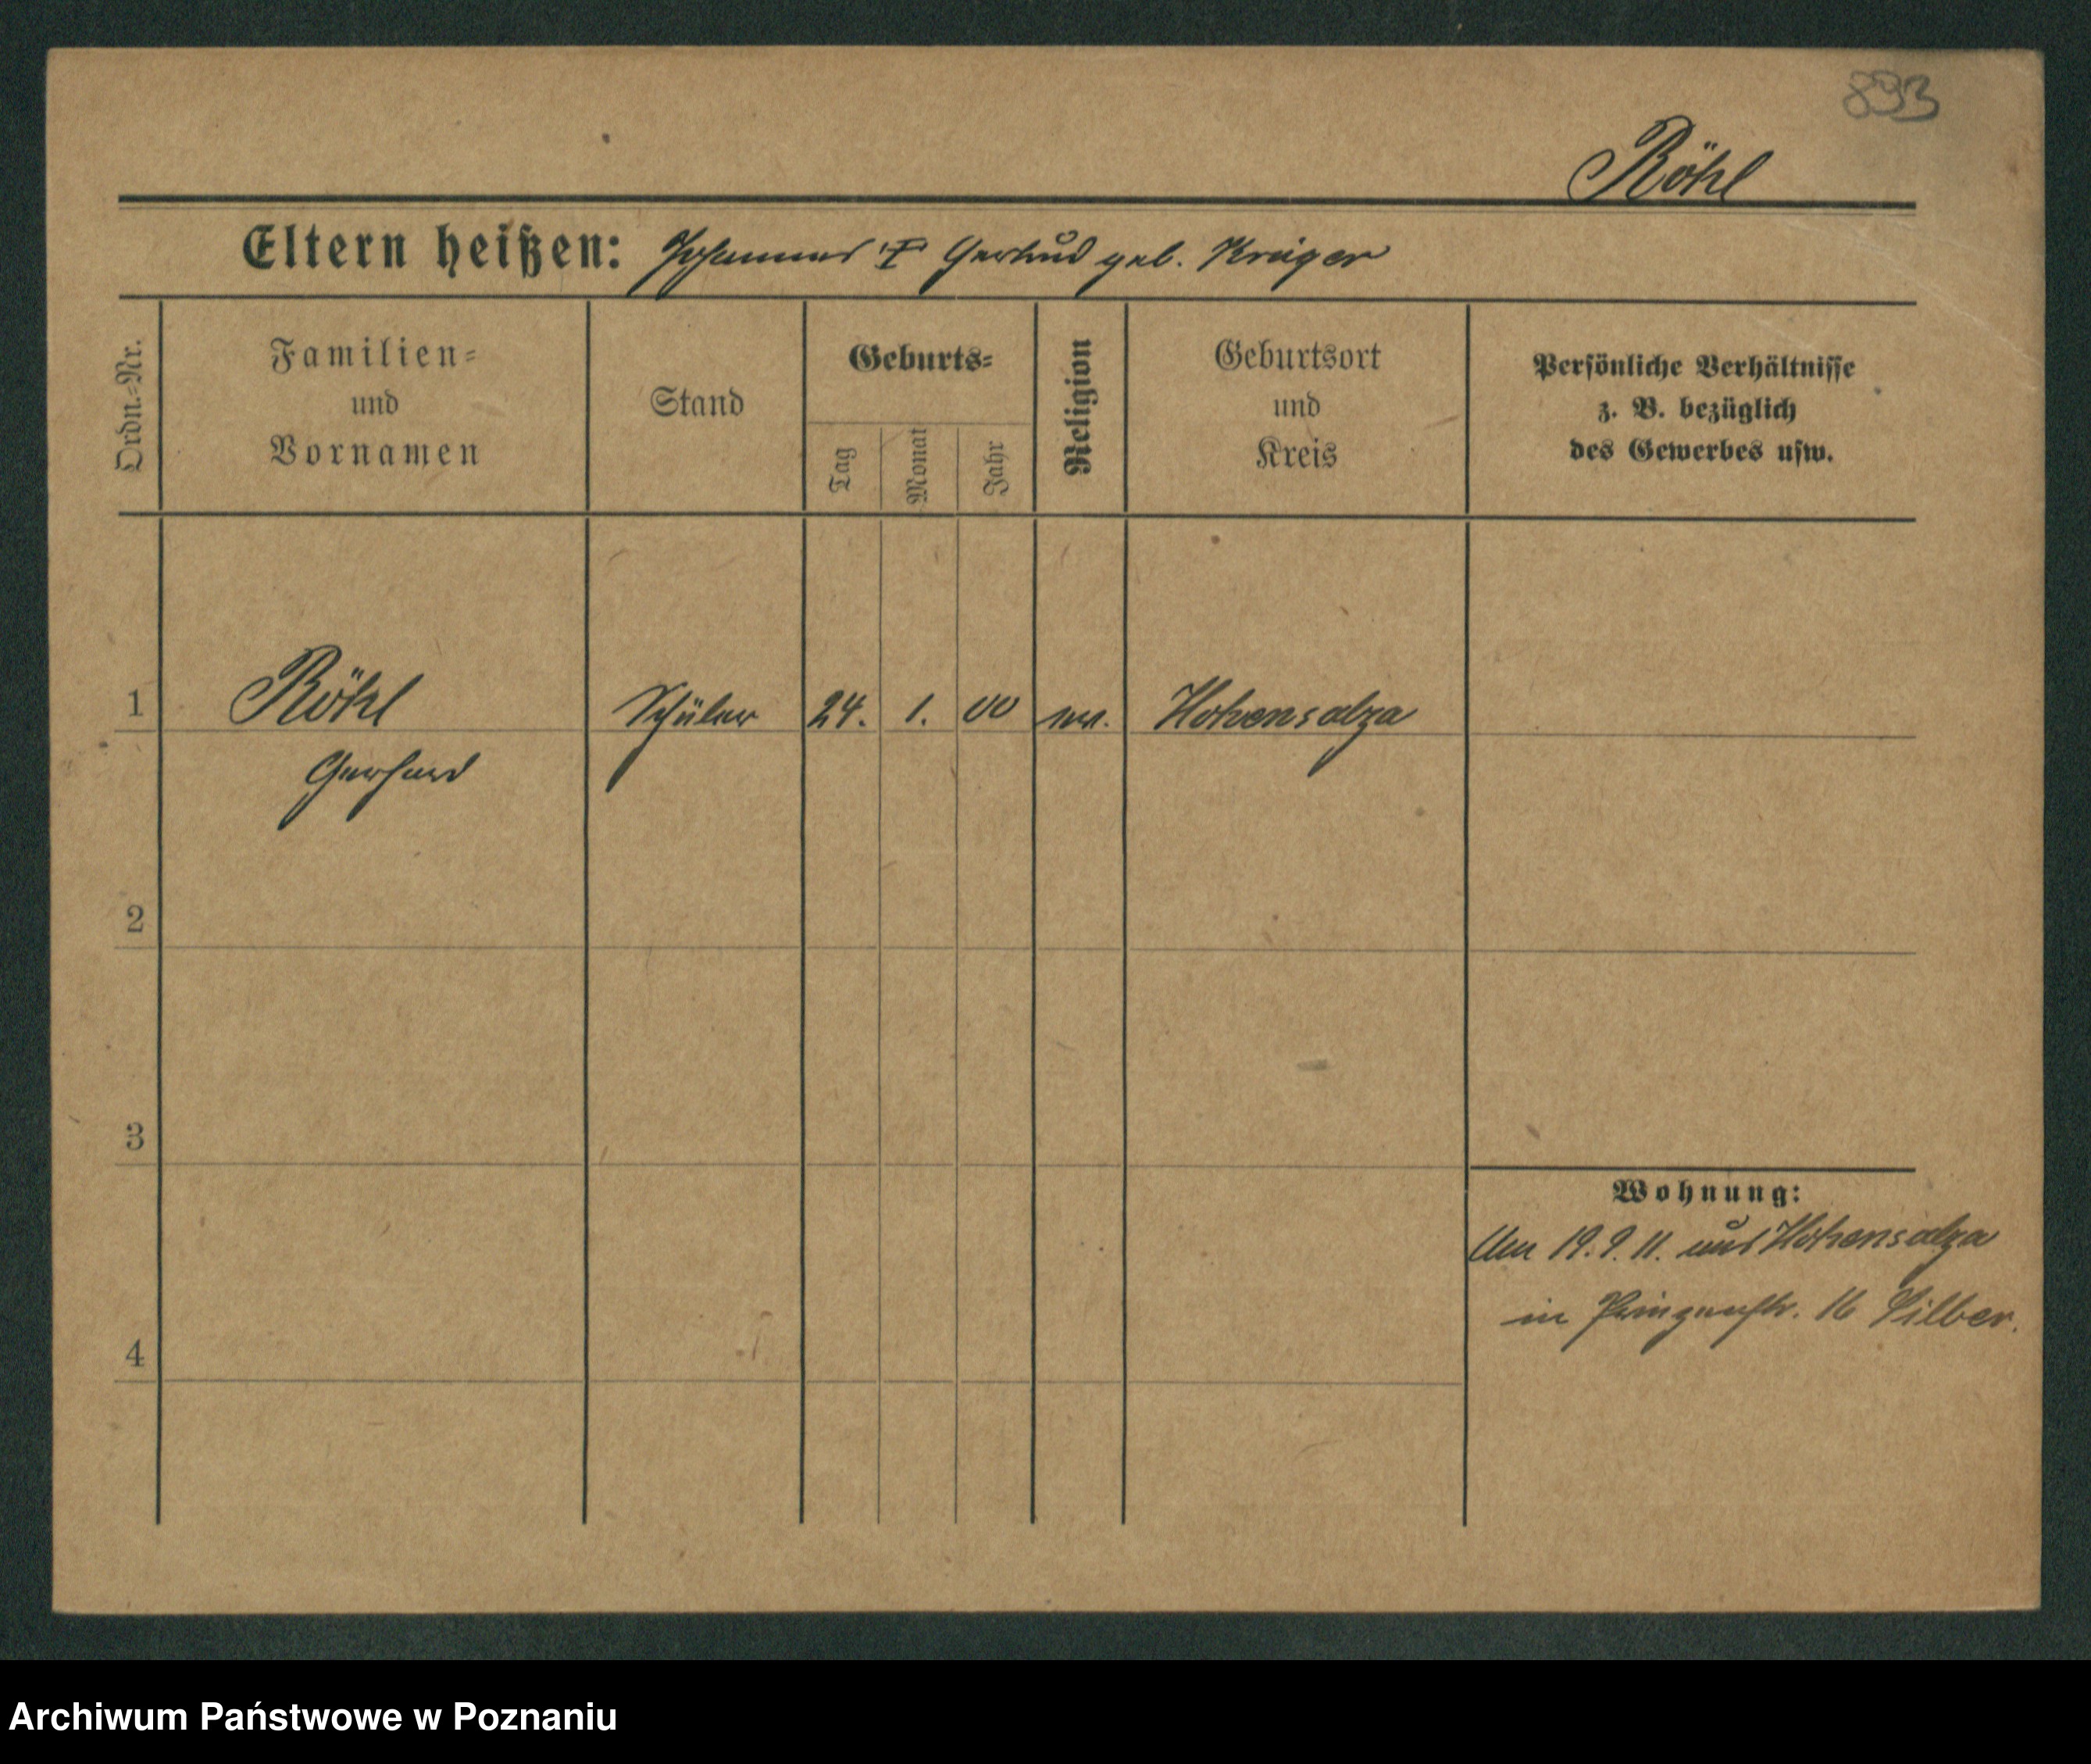 893
Röhl
Eltern heißen: Johannes & Gertrud geb. Krüger
Ordn.-Nr.
Familien-
und
Vornamen
Stand
Geburts-
Tag
Monat
Jahr
Religion
Geburtsort
und
Kreis
Persönliche Verhältnisse
z. B. bezüglich
des Gewerbes usw.
1 Röhl Schüler 24. 1. 00 ev. Hohensalza
Gerhard
2
3
4
Wohnung:
Am 19. 9. 11. aus Hohensalza
in Prinzenstr. 16 Silber.
Archiwum Państwowe w Poznaniu